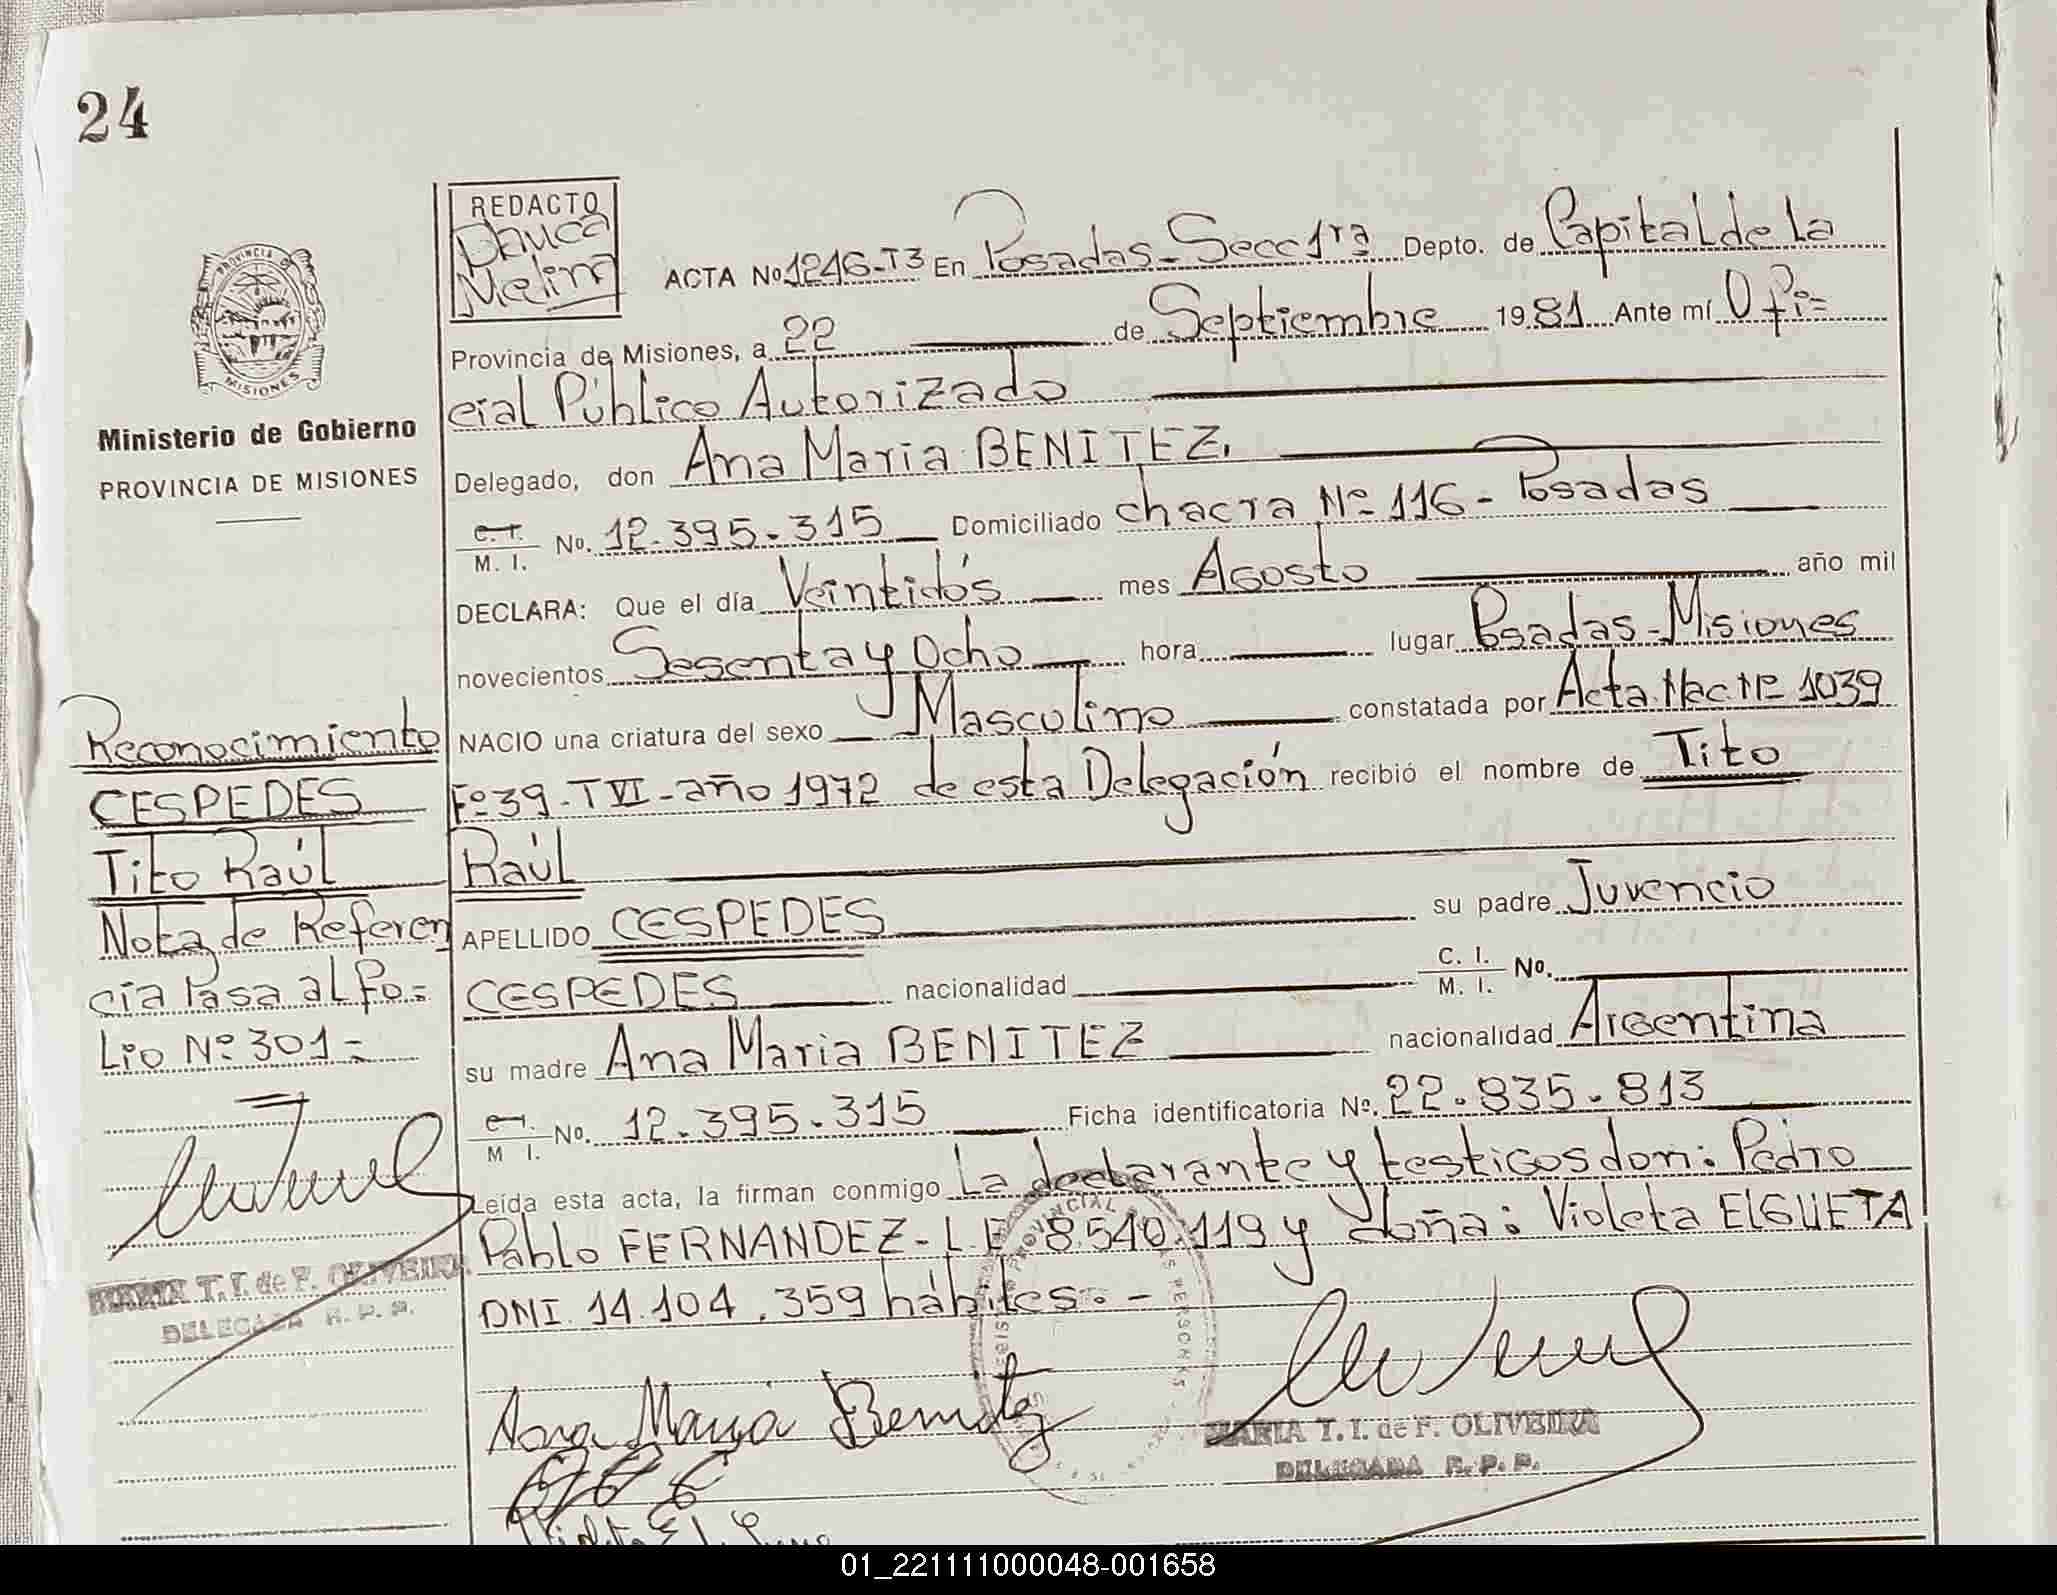 24
REDACTO
PROVINCIA DE
MISIONES
ACTA No 1246-T3 En Posadas-Secc 1ra Depto. de Capital de La
Provincia de Misiones, a 22 de Septiembre 1981 Ante mí Ofi=
cial Público Autorizado
Ministerio de Gobierno
PROVINCIA DE MISIONES
Delegado, don Ana Maria BENITEZ.
C.I. / M. I. No. 12.395.315 Domiciliado chacra Nº 116 - Posadas
DECLARA: Que el día Veintidós mes Agosto año mil
novecientos Sesenta y Ocho hora lugar Posadas-Misiones
NACIO una criatura del sexo Masculino constatada por Acta Nac Nº 1039
Fº39-TVI-año 1972 de esta Delegación recibió el nombre de Tito
Raúl
APELLIDO CESPEDES su padre Juvencio
CESPEDES nacionalidad C. I. / M. I. No.
su madre Ana Maria BENITEZ nacionalidad Argentina
C.I. / M I. No. 12.395.315 Ficha identificatoria Nº. 22.835.813
Leída esta acta, la firman conmigo La declarante y testigos don: Pedro
Pablo FERNANDEZ-L.E 8.540.119 y doña: Violeta ELGUETA
DNI. 14.104.359 hábiles. -
Reconocimiento
CESPEDES
Tito Raúl
Nota de Referen
cia Pasa al Fo=
Lio Nº 301=
MARIA T. I. de F. OLIVEIRA
DELEGADA R. P. P.
Ana Maria Benitez
MARIA T. I. de F. OLIVEIRA
DELEGADA R. P. P.
01_221111000048-001658